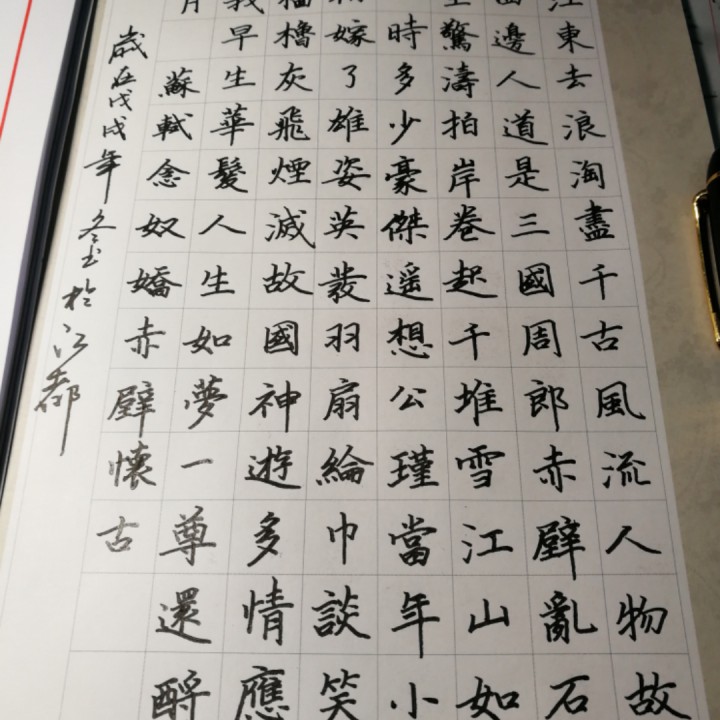 江東去浪淘盡千古風流人物故
邊人道是三國周郎赤壁亂石
驚濤拍岸卷起千堆雪江山如
時多少豪傑遥想公瑾當年小
嫁了雄姿英發羽扇綸巾談笑
檣櫓灰飛煙滅故國神遊多情應
我早生華髮人生如夢一尊還酹
月 蘇軾念奴嬌赤壁懷古
歲在戊戌年冬至於江都